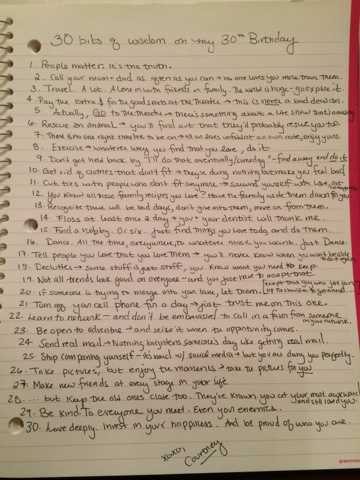 30 bits of wisdom on my 30th Birthday
1. People matter. It's the truth.
2. Call your mom + dad as often as you can → no one loves you more than them.
3. Travel. A lot. Alone + with friends + family. The world is huge - go explore it.
4. Pay the extra $ for the good seats at the theater → this is never a bad decision.
5. Actually, GO to the theater → there's something about a live show that's
6. Rescue an animal → you'll find out that they'll probably rescue you too.
7. There is no one right timeline to be on → all our lives unfold at our own rate, enjoy yours.
8. Exercise → whatever way you find that you love, do it.
9. Don't get held back by "I'll do that eventually/someday" - find a way and do it
10. Get rid of clothes that don't fit → they're doing nothing but make you feel bad
11. Cut ties with people who don't fit anymore → surround yourself with love, not
12. You know all those family recipes you love? Have the family write them down for you
13. Recognize there will be bad days, don't give into them, move on from them.
14. Floss at least once a day → you + your dentist will thank me.
15. Find a Hobby. Or six. Just find things you love today and do them.
16. Dance. All the time, everywhere, to whatever music you want. Just Dance.
17. Tell people you love that you love them → you'll never know when you won't be able
18. Declutter → some stuff is great stuff, you know what you need to keep
19. Not all trends look good on everyone → and you just have to accept that.
20. If someone is trying to merge into your lane, let them.
21. Turn off your cell phone for a day → just trust me on this one.
22. Learn to network → and don't be embarrassed to call in a favor from someone in your network.
23. Be open to adventure → and seize it when the opportunity comes.
24. Send real mail → Nothing brightens someone's day like getting real mail.
25. Stop comparing yourself → it's hard w/ social media → but you are doing you perfectly.
26. Take pictures, but enjoy the moments → take the pictures for you
27. Make new friends at every stage in your life
28. .... but keep the old ones close too. They've known you at your most awkward and still loved you.
29. Be kind to everyone you meet. Even your enemies.
30. Love deeply. Invest in your happiness. And be proud of who you are.
xoxo,
Courtney